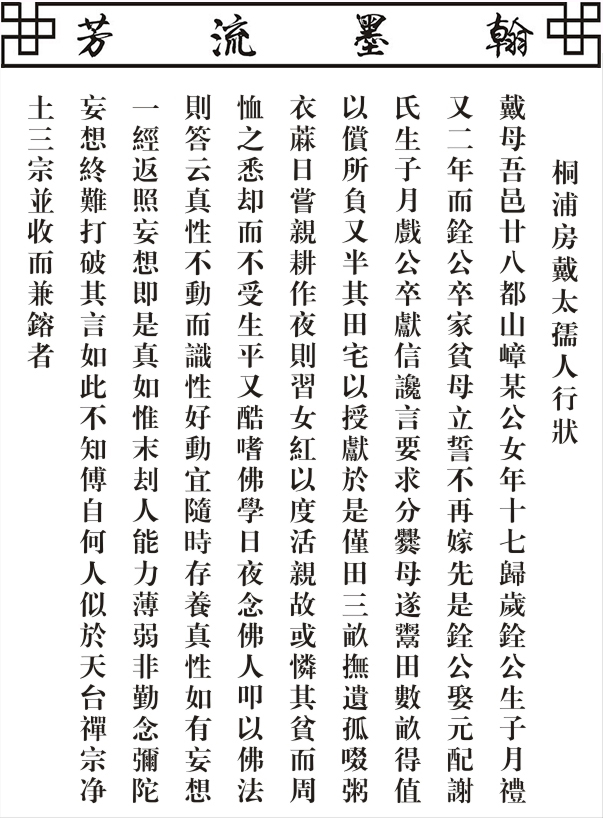 翰墨流芳
桐浦房戴太孺人行狀
戴母吾邑廿八都山嶂某公女年十七歸歲銓公生子月禮
又二年而銓公卒家貧母立誓不再嫁先是銓公娶元配謝
氏生子月戲公卒獻信讒言要求分爨母遂鬻田數畝得值
以償所負又半其田宅以授獻於是僅田三畝撫遺孤啜粥
衣蔴日嘗親耕作夜則習女紅以度活親故或憐其貧而周
恤之悉却而不受生平又酷嗜佛學日夜念佛人叩以佛法
則答云真性不動而識性好動宜隨時存養真性如有妄想
一經返照妄想即是真如惟末刦人能力薄弱非勤念彌陀
妄想終難打破其言如此不知傅自何人似於天台禪宗净
土三宗並收而兼鎔者